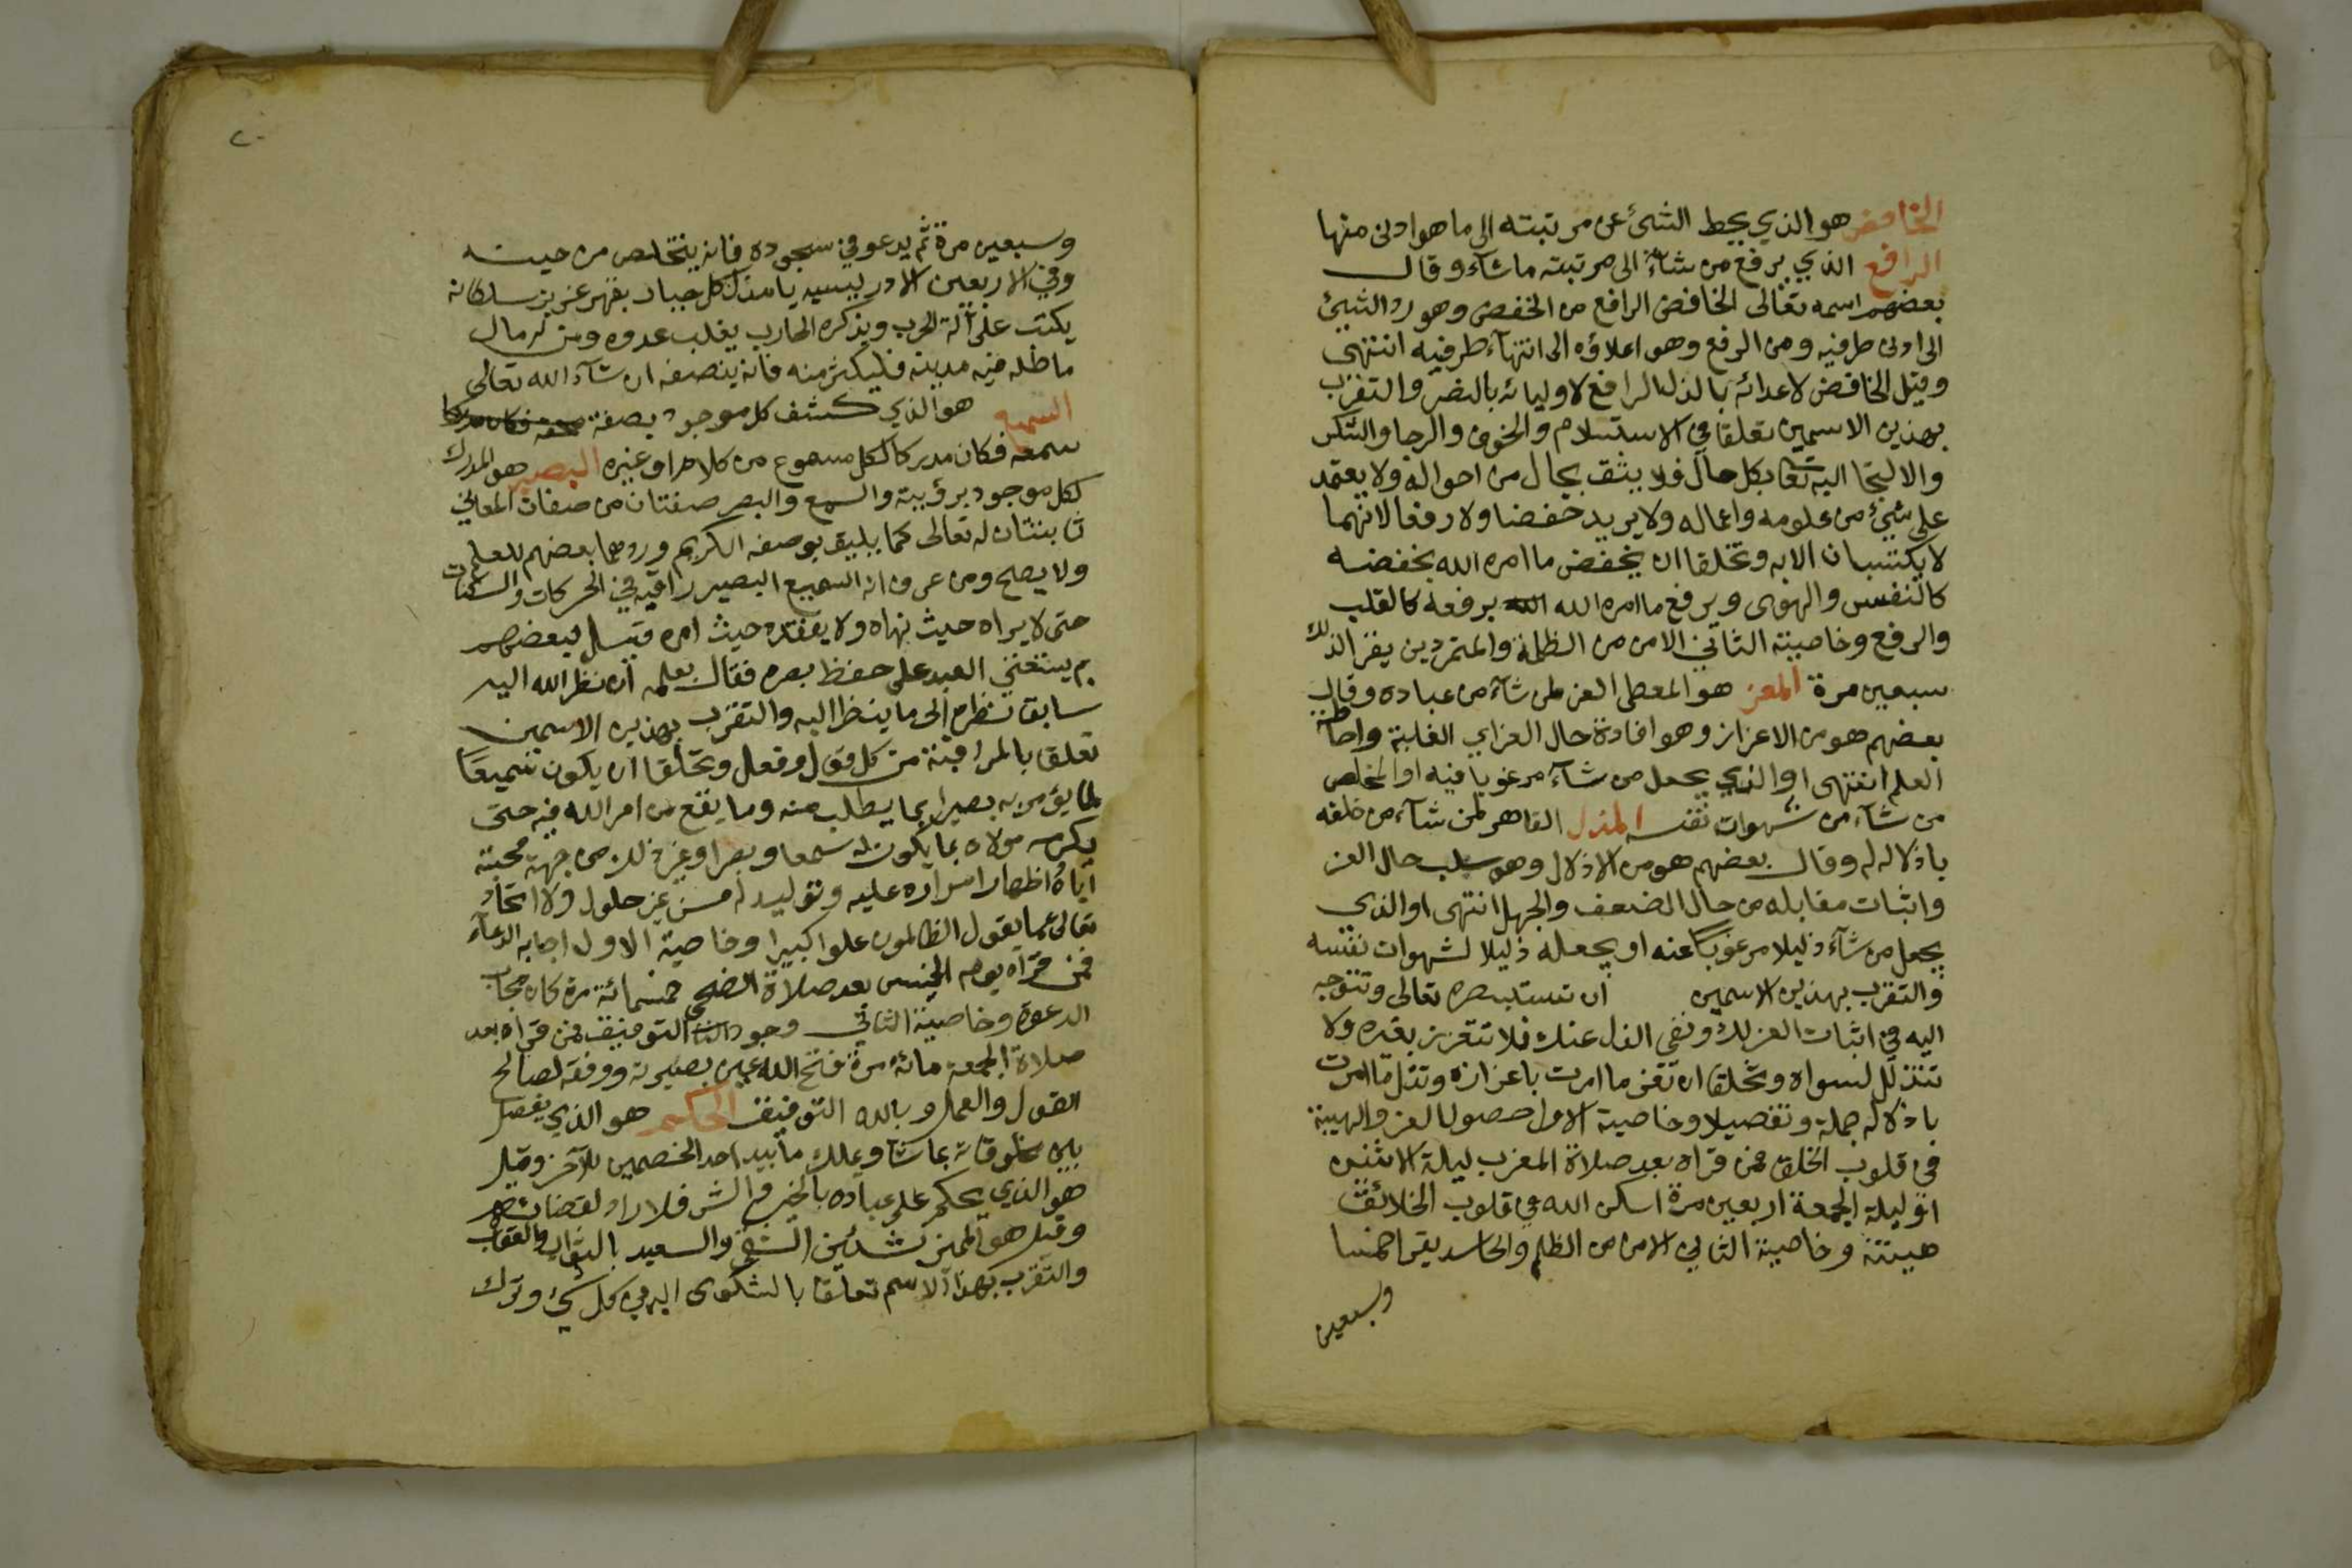 الخافض هو الذي يحط الشئ عن مرتبته الى ما هو ادنى منها
الرافع الذي يرفع من شاء الى مرتبته ما شاء وقال
بعضهم اسمه تعالى الخافض الرافع من الخفض وهو رد الشيئ
الى ادنى طرفيه ومن الرفع وهو اعلاؤه الى انتهاء طرفيه انتهى
وقيل الخافض لاعدائه بالذل الرافع لاوليائه بالنصر والتقرب
بهذين الاسمين تعلقا في الاستسلام والخوف والرجا والشكر
والالتجا اليه تعا بكل حال فلا يثق بحال من احواله ولا يعتمد
على شيئ من علومه واعماله ولا يريد خفضا ولا رفعا لانهما
لا يكتسبان الا به وتخلقا ان يخفض ما امره الله بخفضه
كالنفس والهوى ويرفع ما امره الله برفعه كالقلب
والرفع وخاصيته الثاني الامن من الظلمة والمتمردين يقرا لذلك
سبعين مرة المعز هو المعطى العز لمن شاء من عباده وقال
بعضهم هو من الاعزاز وهو افادة حال العز اي الغلبة واحاطة
العلم انتهى او الذي يجعل من شاء مرغوبا فيه او المخلص
من شاء من شهوات نفسه المذل القاهر لمن شاء من خلقه
باذلاله له وقال بعضهم هو من الاذلال وهو سلب حال العز
واثبات مقابله من حال الضعف والجهل انتهى او الذي
يجعل من شاء ذليلا مرغوبا عنه او يجعله ذليلا لشهوات نفسه
والتقرب بهذين الاسمين ان تستبصره تعالى وتتوجه
اليه في اثبات العز لك ونفى الذل عنك فلا تتعزز بغيره ولا
تتذلل لسواه وتخلقا ان تعز ما امرت باعزازه وتذل ما امرت
باذلاله جملة وتفصيلا وخاصية الاول حصول العز والهيبة
في قلوب الخلق فمن قراه بعد صلاة المغرب ليلة الاثنين
او ليلة الجمعة اربعين مرة اسكن الله في قلوب الخلائق
هيبته وخاصية الثاني الامن من الظلم والحاسد يقرا خمسا
وسبعين
٢٠
وسبعين مرة ثم يدعو في سجوده فانه يتخلص من حينه
وفي الاربعين الادريسيه يا مذل كل جبار بقهر عزيز سلطانه
يكتب على آلة الحرب ويذكره المحارب يغلب عدوه ومن له مال
ماطله فيه مدينه فليكثر منه فانه ينصفه ان شاء الله تعالى
السميع هو الذي كشف كل موجود بصفة
سمعه فكان مدركا لكل مسموع من كلام او غيره البصير هو المدرك
لكل موجود برؤيته والسمع والبصر صفتان من صفات المعاني
ثابتتان له تعالى كما يليق بوصفه الكريم وردهما بعضهم للعلم
ولا يصح ومن عرف انه السميع البصير راقبه في الحركات والسكنات
حتى لا يراه حيث نهاه ولا يفقده حيث امره قيل لبعضهم
بم يستعين العبد على حفظ بصره فقال بعلمه ان نظر الله اليه
سابق نظره الى ما ينظر اليه والتقرب بهذين الاسمين
تعلق بالمراقبة من كل قول وفعل وتخلقا ان يكون سميعا
لما يؤمر به بصيرا بما يطلب منه وما يقع من امر الله فيه حتى
يكرمه مولاه بما يكون له سمعا وبصرا وغير ذلك من جهة محبته
اياه اظهار اسراره عليه وتوليه له من غير حلول ولا اتحاد
تعالى عما يقول الظالمون علوا كبيرا وخاصية الاول اجابه الدعاء
فمن قراه يوم الخميس بعد صلاة الضحى خمسمائة مرة كان مجاب
الدعوة وخاصية الثاني وجود التوفيق فمن قراه بعد
صلاة الجمعة مائة مرة فتح الله عين بصيرته ووفقه لصالح
القول والعمل وبالله التوفيق الحكم هو الذي يفصل
بين مخلوقاته بما شا ويملك تأييد احد الخصمين للآخر وقيل
هو الذي يحكم على عباده بالخير والشر فلا راد لقضائه
وقيل هو المميز بين الشقي والسعيد بالثواب والعقاب
والتقرب بهذا الاسم تعلقا بالشكوى اليه في كل شيء وترك